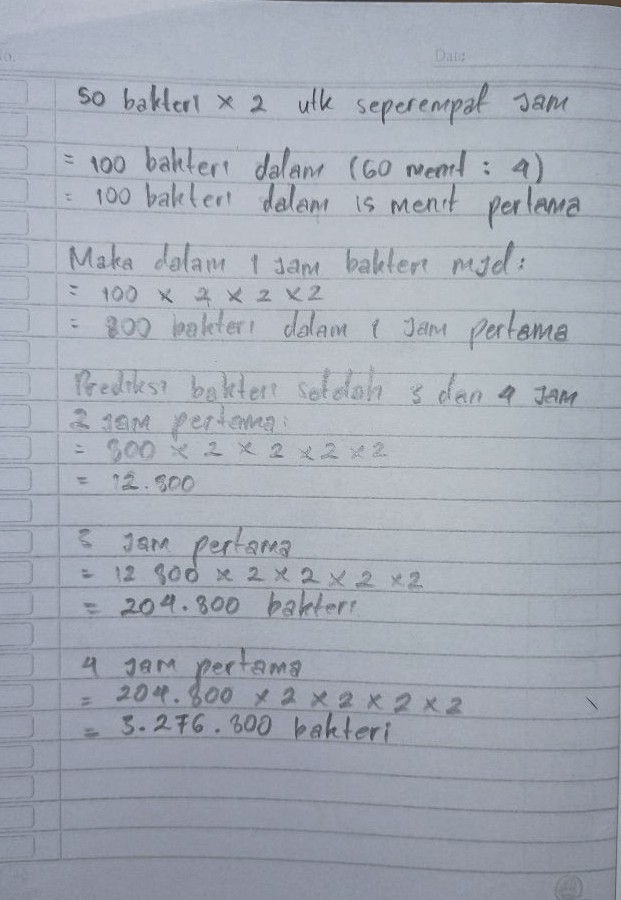 Date
50 bakteri × 2 utk seperempat Jam
= 100 bakteri dalam (60 menit : 4)
= 100 bakteri dalam 15 menit pertama
Maka dalam 1 Jam bakteri mjd:
= 100 × 2 × 2 × 2
= 800 bakteri dalam 1 Jam pertama
Prediksi bakteri setelah 3 dan 4 JAM
2 Jam pertama:
= 800 × 2 × 2 × 2 × 2
= 12.800
3 Jam pertama
= 12 800 × 2 × 2 × 2 × 2
= 204.800 bakteri
4 Jam pertama
= 204.800 × 2 × 2 × 2 × 2
= 3.276.800 bakteri